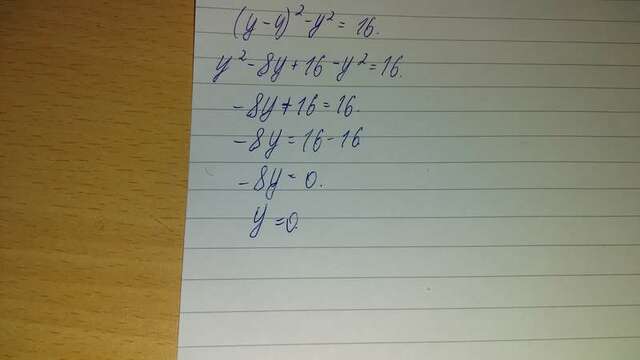 (y-4)²-y²=16.
y²-8y+16-y²=16.
-8y+16=16.
-8y=16-16
-8y=0.
y=0.